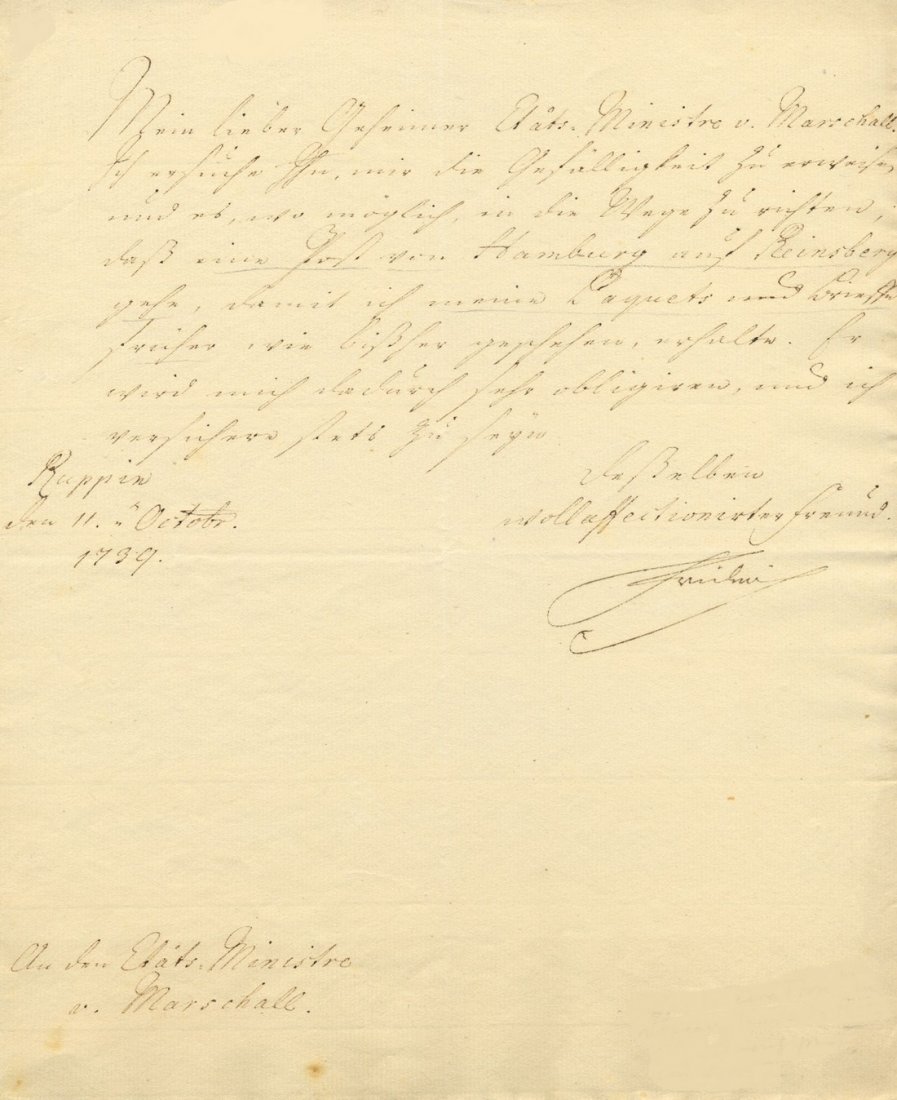 Mein lieber Geheimer Etäts-Ministre v. Marschall.
Ich ersuche Ihn, mir die Gefälligkeit zu erweisen,
und es, wo möglich, in die Wege zu richten,
daß eine Post von Hamburg auf Reinsberg
gehe, damit ich meine Paquets und Brieffe
früher wie bißher geschehen, erhalte. Er
wird mich dadurch sehr obligiren, und ich
versichere stets zu seyn
Ruppin
den 11. Octobr.
1739.
deßelben
wollaffectionirter freund.
Friderich
An den Etäts-Ministre
v. Marschall.